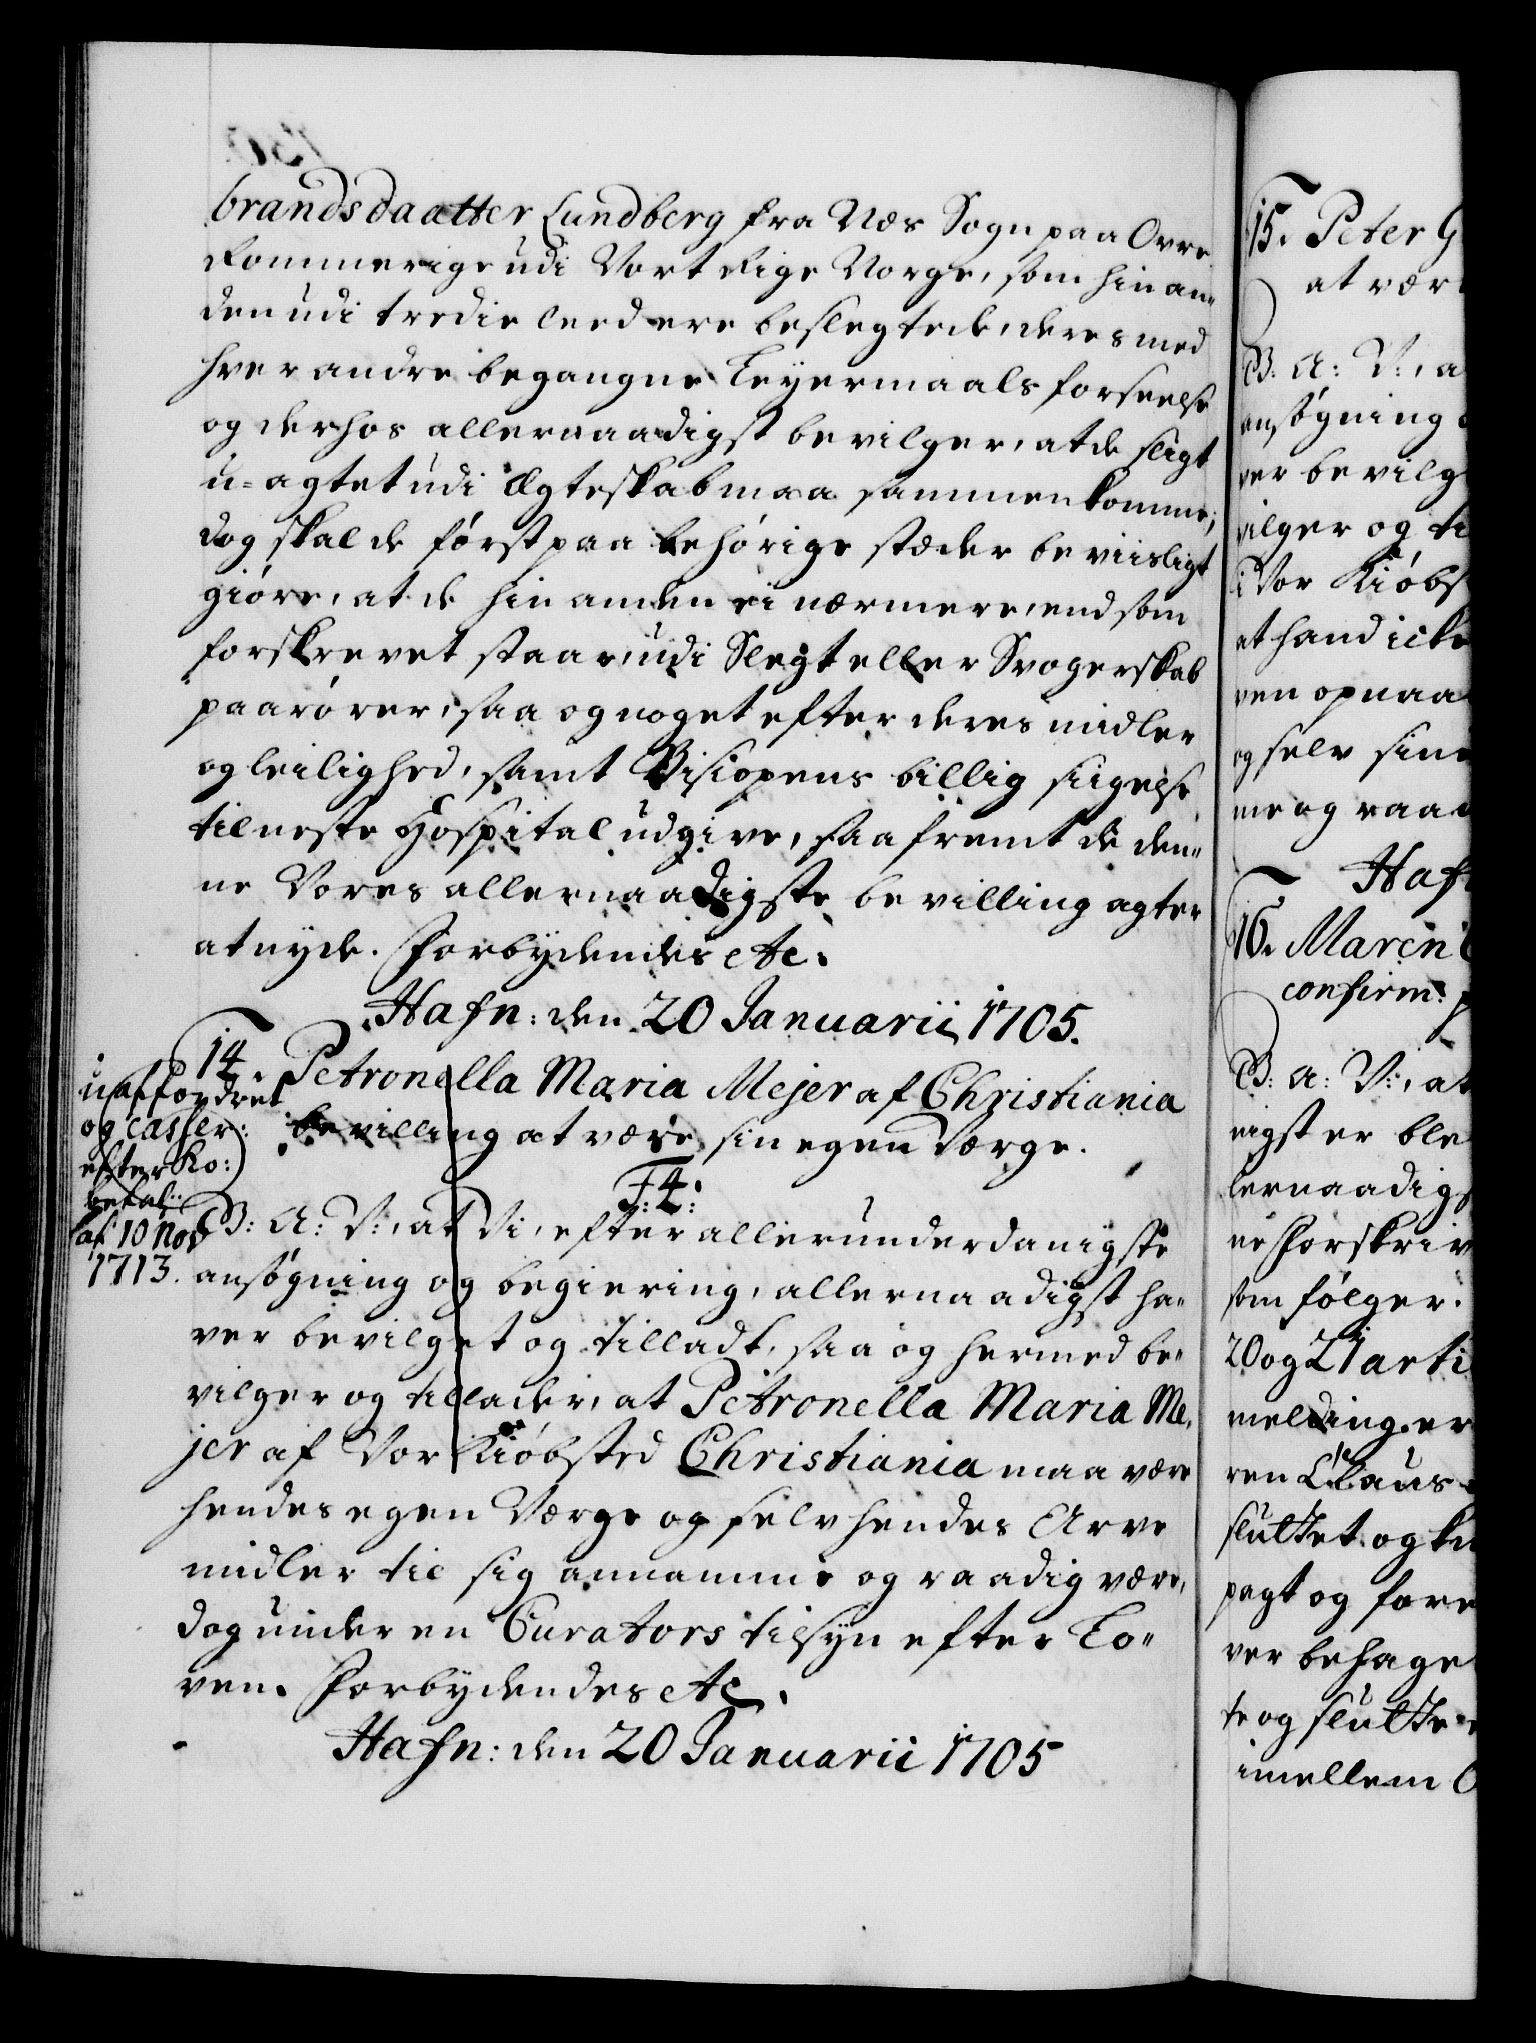 brandsdaatter Lundberg fra Næs Sogn paa Ovre
Rommerige udi Vort Rige Norge, som hinan„
den udi tredie leed ere beslegtede, deres med
hver andre begangne Leyermaals forseelse
og derhos allernaadigst bevilger, at de sligt
u-agtet udi Ægteskab maa sammenkomme;
dog skal de først paa behørige stæder beviisligt
giøre, at de hin anden ei nærmere, end som
forskrevet staar, udi Slegt eller Svogerskab
paarører, saa og noget efter deres midler
og leilighed, samt Bisiopens billig sigelse
til neste Hospital udgive, saafremt de den„
ne Vores allernaadigste bevilling agter
at nyde. Forbydendes etc.
Hafn: den 20 Januarii 1705.
14. Petronella Maria Mejer af Christiania
bevilling at være sin egen Værge.
uaffordret
og casser:
efter Ko:
befal:
af 10 Nov
1713.
F: 4:
G: A: V:, at Vi, efter allerunderdanigste
ansøgning og begiering, allernaadigst ha„
ver bevilget og tilladt, saa og hermed be„
vilger og tillader, at Petronella Maria Me„
jer af Vor Kiøbsted Christiania maa være
hendes egen Værge og selv hendes Arve
midler til sig annamme og raadig være,
dog under en Curators tilsyn efter Lo„
ven. Forbydendes etc.
Hafn: den 20 Januarii 1705
15. Peter G
at vær
G: A: V:, a
ansøgning
ver bevilg
vilger og ti
i Vor Kiøbs
at hand icke
ven opnaa
og selv sine
me og raa
Haf
16. Maren
confirm: p
G: A: V:, at
nigst er ble
lernaadigs
ne Forskriv
som følger.
20 og 21 arti
melding er
ren Claus
sluttet og ku
pagt og fore
ver behage
te og slutte
imellem